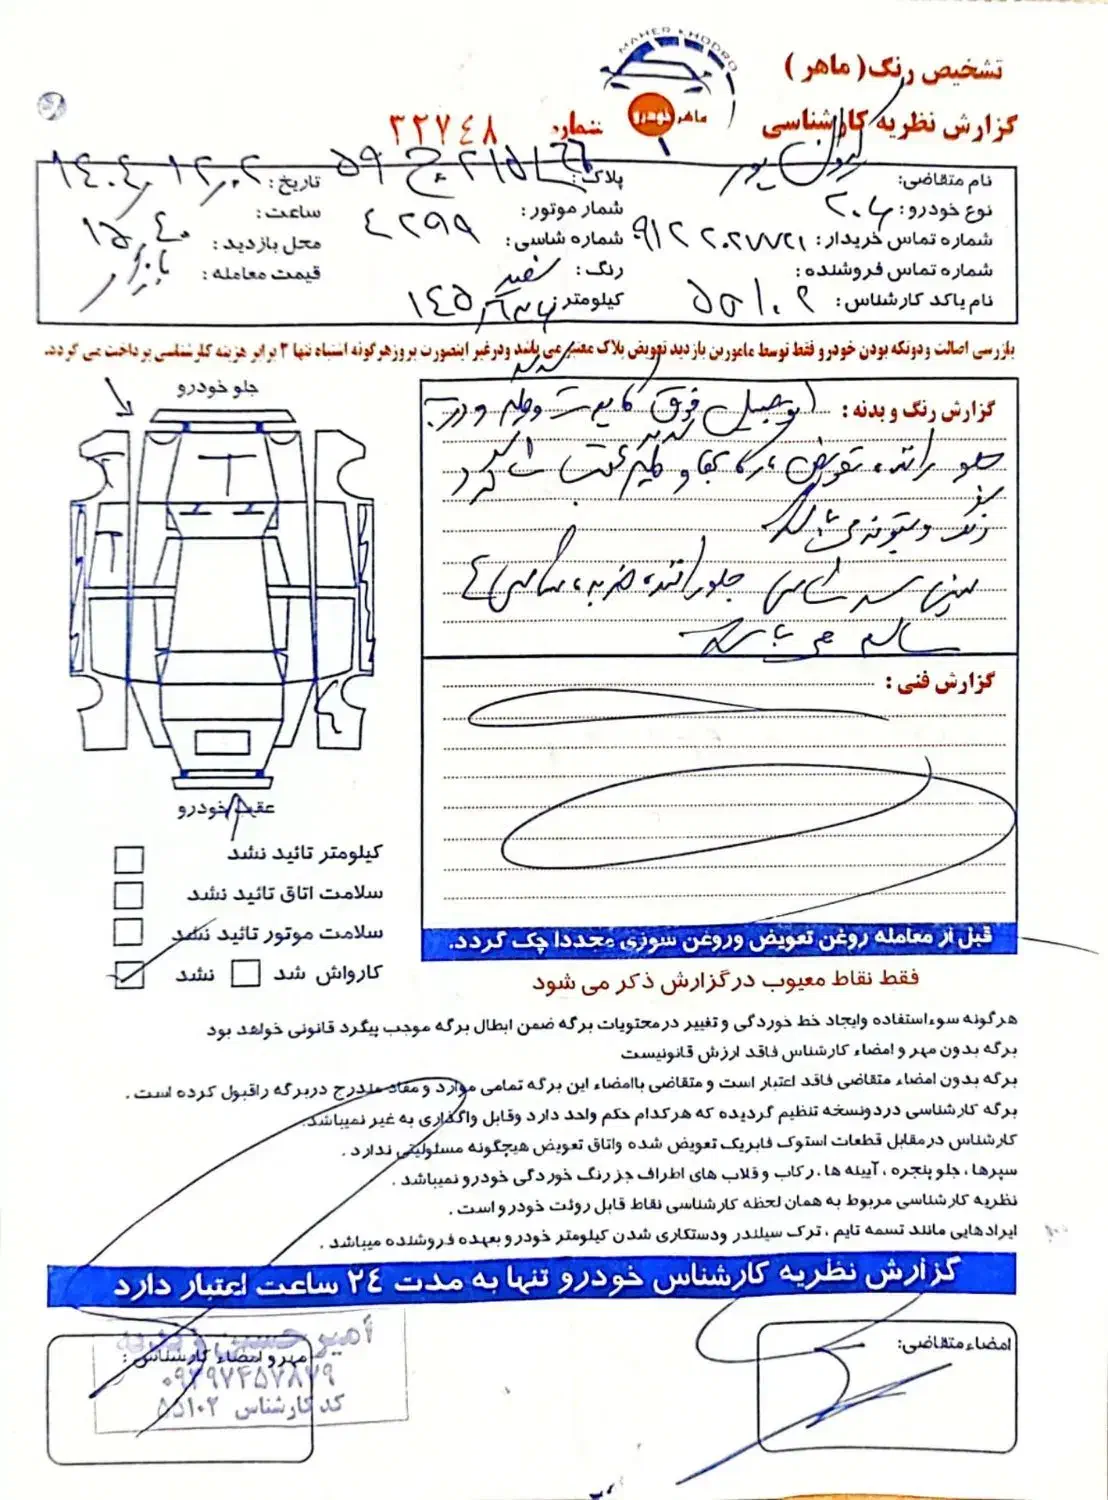 MAHER KHODRO
تشخیص رنگ ( ماهر )
ماهر خودرو
گزارش نظریه کارشناسی
شماره ۳۲۷۴۸
نام متقاضی:
پلاک:
تاریخ: ۱۴۰۴/۱۲/۰۲
نوع خودرو: ۲۰۶
شمار موتور:
ساعت: ۱۵:۴۰
شماره تماس خریدار:
شماره شاسی: ۴۲۹۹
محل بازدید:
شماره تماس فروشنده:
رنگ: سفید
قیمت معامله:
نام یاکد کارشناس: ۵۵۱۰۲
کیلومتر ۱۴۵
بازرسی اصالت ودوتکه بودن خودرو فقط توسط مامورین بازدید تعویض پلاک معتبر می باشد ودرغیر اینصورت بروزهرگونه اشتباه تنها ۲ برابر هزینه کارشناسی پرداخت می گردد.
جلو خودرو
گزارش رنگ و بدنه : اتومبیل فوق کاپوت و درب
جلو راننده تعویض گلگیر عقب شاگرد
رنگ و بتونه می باشد
سینی شاسی جلو راننده ضربه
سالم می باشد
عقب خودرو
گزارش فنی :
کیلومتر تائید نشد
سلامت اتاق تائید نشد
سلامت موتور تائید نشد
کارواش شد نشد
قبل از معامله روغن تعویض وروغن سوزی مجددا چک گردد.
فقط نقاط معیوب درگزارش ذکر می شود
هرگونه سوءاستفاده وایجاد خط خوردگی و تغییر درمحتویات برگه ضمن ابطال برگه موجب پیگرد قانونی خواهد بود
برگه بدون مهر و امضاء کارشناس فاقد ارزش قانونیست
برگه بدون امضاء متقاضی فاقد اعتبار است و متقاضی باامضاء این برگه تمامی موارد و مفاد مندرج دربرگه راقبول کرده است .
برگه کارشناسی دردونسخه تنظیم گردیده که هرکدام حکم واحد دارد وقابل واگذاری به غیر نمیباشد.
کارشناس درمقابل قطعات استوک فابریک تعویض شده واتاق تعویض هیچگونه مسئولیتی ندارد .
سپرها ، جلوپنجره ، آیینه ها ، رکاب و قلاب های اطراف جز رنگ خوردگی خودرو نمیباشد .
نظریه کارشناسی مربوط به همان لحظه کارشناسی نقاط قابل روئت خودرو است .
ایرادهایی مانند تسمه تایم ، ترک سیلندر ودستکاری شدن کیلومتر خودرو بعهده فروشنده میباشد .
گزارش نظریه کارشناس خودرو تنها به مدت ۲۴ ساعت اعتبار دارد
امضاء متقاضی:
مهر و امضاء کارشناس :
امیر حسین
۰۹۳۹۷۴۵۷۸۷۹
کد کارشناس ۵۵۱۰۲